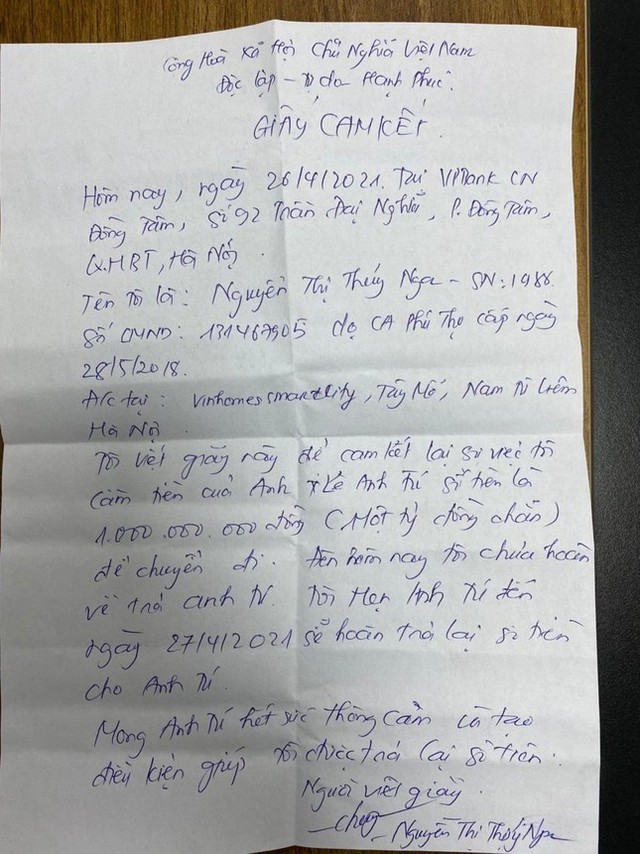 Cộng Hoà Xã Hội Chủ Nghĩa Việt Nam
Độc lập - Tự do Hạnh Phúc.
GIẤY CAM KẾT.
Hôm nay, ngày 26/4/2021. Tại VPBank CN
Đồng Tâm, Số 92 Trần Đại Nghĩa, P. Đồng Tâm,
Q.HBT, Hà Nội.
Tên tôi là: Nguyễn Thị Thúy Nga - SN: 1988.
Số CMND: 131467905 do CA Phú Thọ cấp ngày
28/5/2018.
Đ/c tại: Vinhomes smartcity, Tây Mỗ, Nam Từ Liêm
Hà Nội.
Tôi viết giấy này để cam kết lại sự việc tôi
cầm tiền của Anh Lê Anh Tú số tiền là
1.000.000.000 đồng (Một tỷ đồng chẵn)
để chuyển đi. đến hôm nay tôi chưa hoàn
về trả anh Tú. Tôi Hẹn Anh Tú đến
ngày 27/4/2021 sẽ hoàn trả lại số tiền
cho Anh Tú.
Mong Anh Tú hết sức thông cảm và tạo
điều kiện giúp tôi được trả lại số tiền.
Người viết giấy.
Nguyễn Thị Thúy Nga